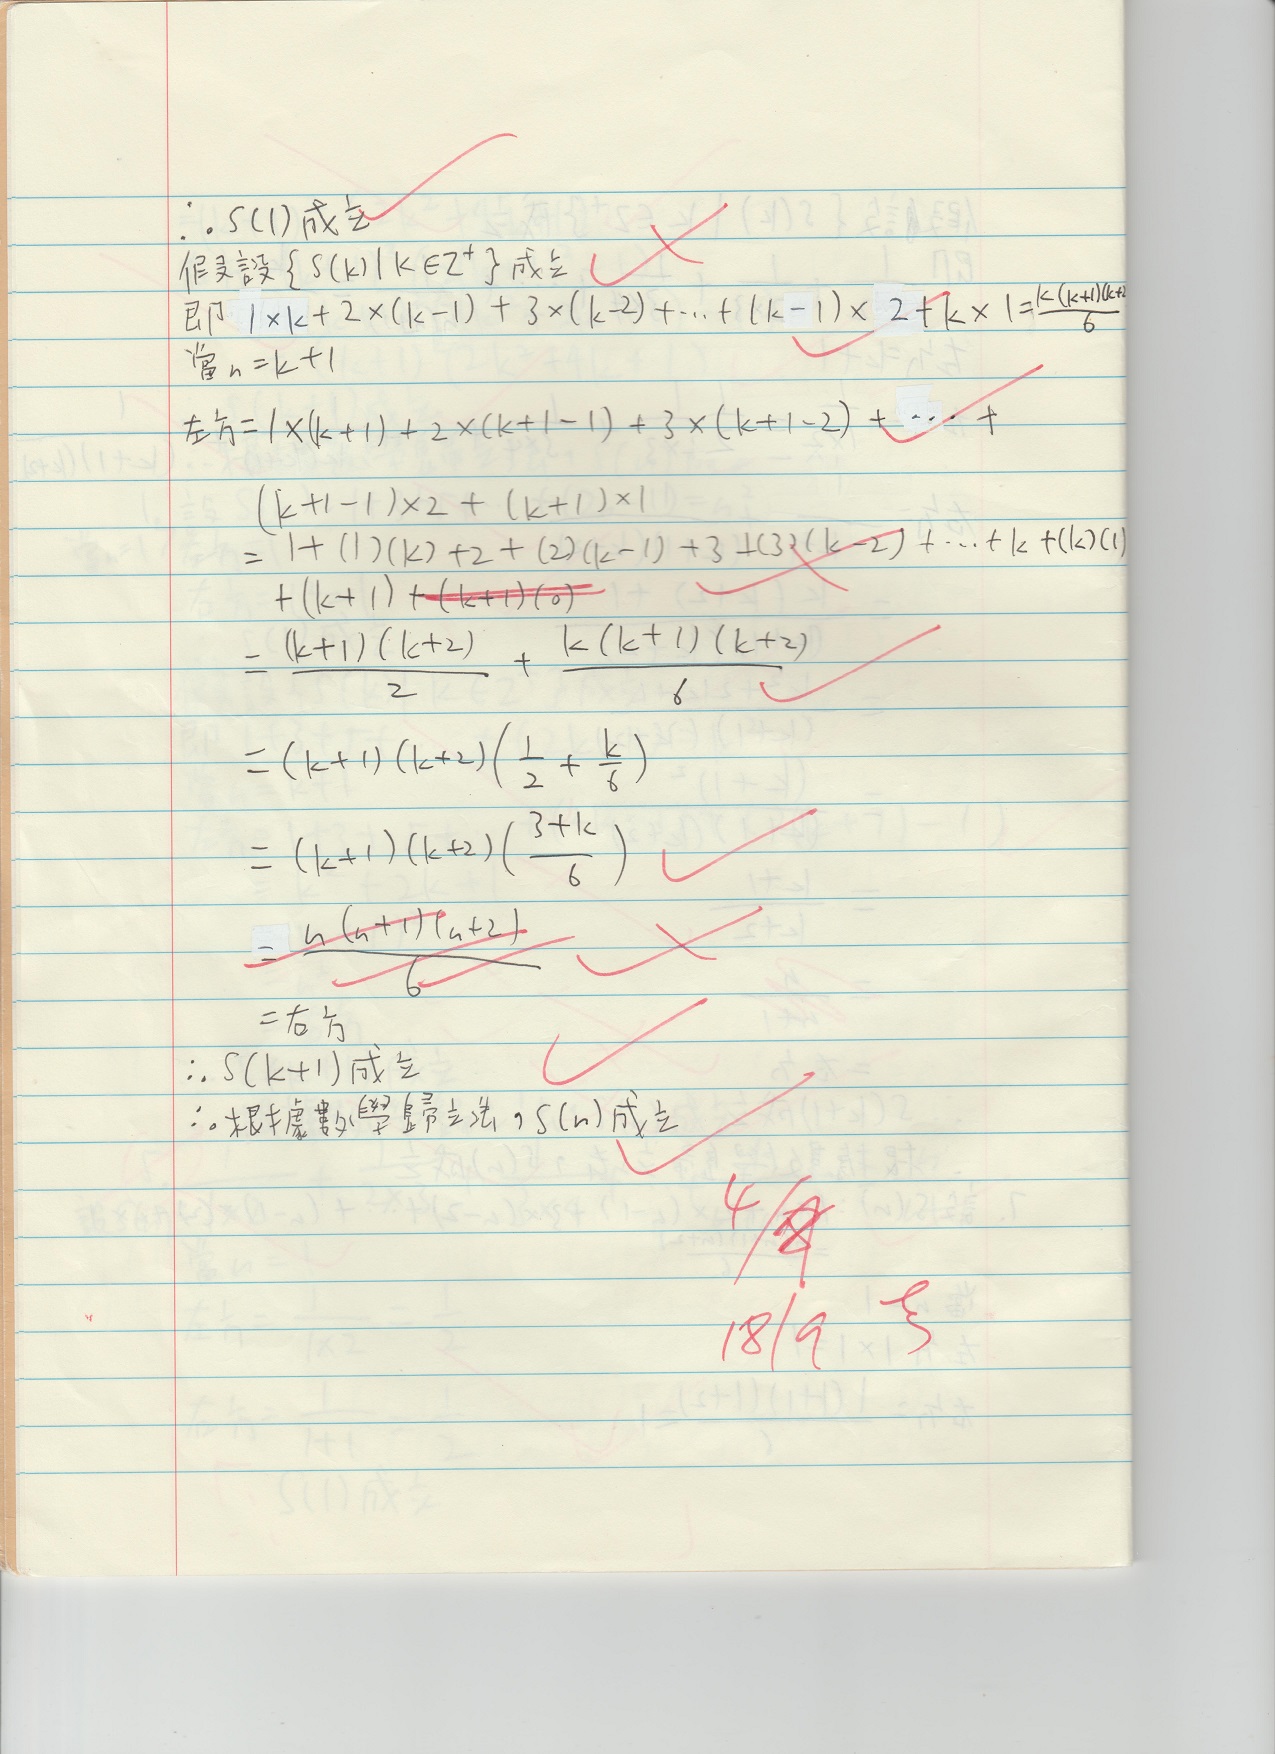 ∴ S(1)成立
假設{S(k)|k∈Z⁺}成立
即 1×k+2×(k-1)+3×(k-2)+…+(k-1)×2+k×1=k(k+1)(k+2)/6
當n=k+1
左方=1×(k+1)+2×(k+1-1)+3×(k+1-2)+…+
(k+1-1)×2+(k+1)×1
=1+(1)(k)+2+(2)(k-1)+3+(3)(k-2)+…+k+(k)(1)
+(k+1)+(k+1)(0)
=(k+1)(k+2)/2+k(k+1)(k+2)/6
=(k+1)(k+2)(1/2+k/6)
=(k+1)(k+2)(3+k/6)
=n(n+1)(n+2)/6
=右方
∴ S(k+1)成立
∴根據數學歸立法,S(n)成立
4/
18/9